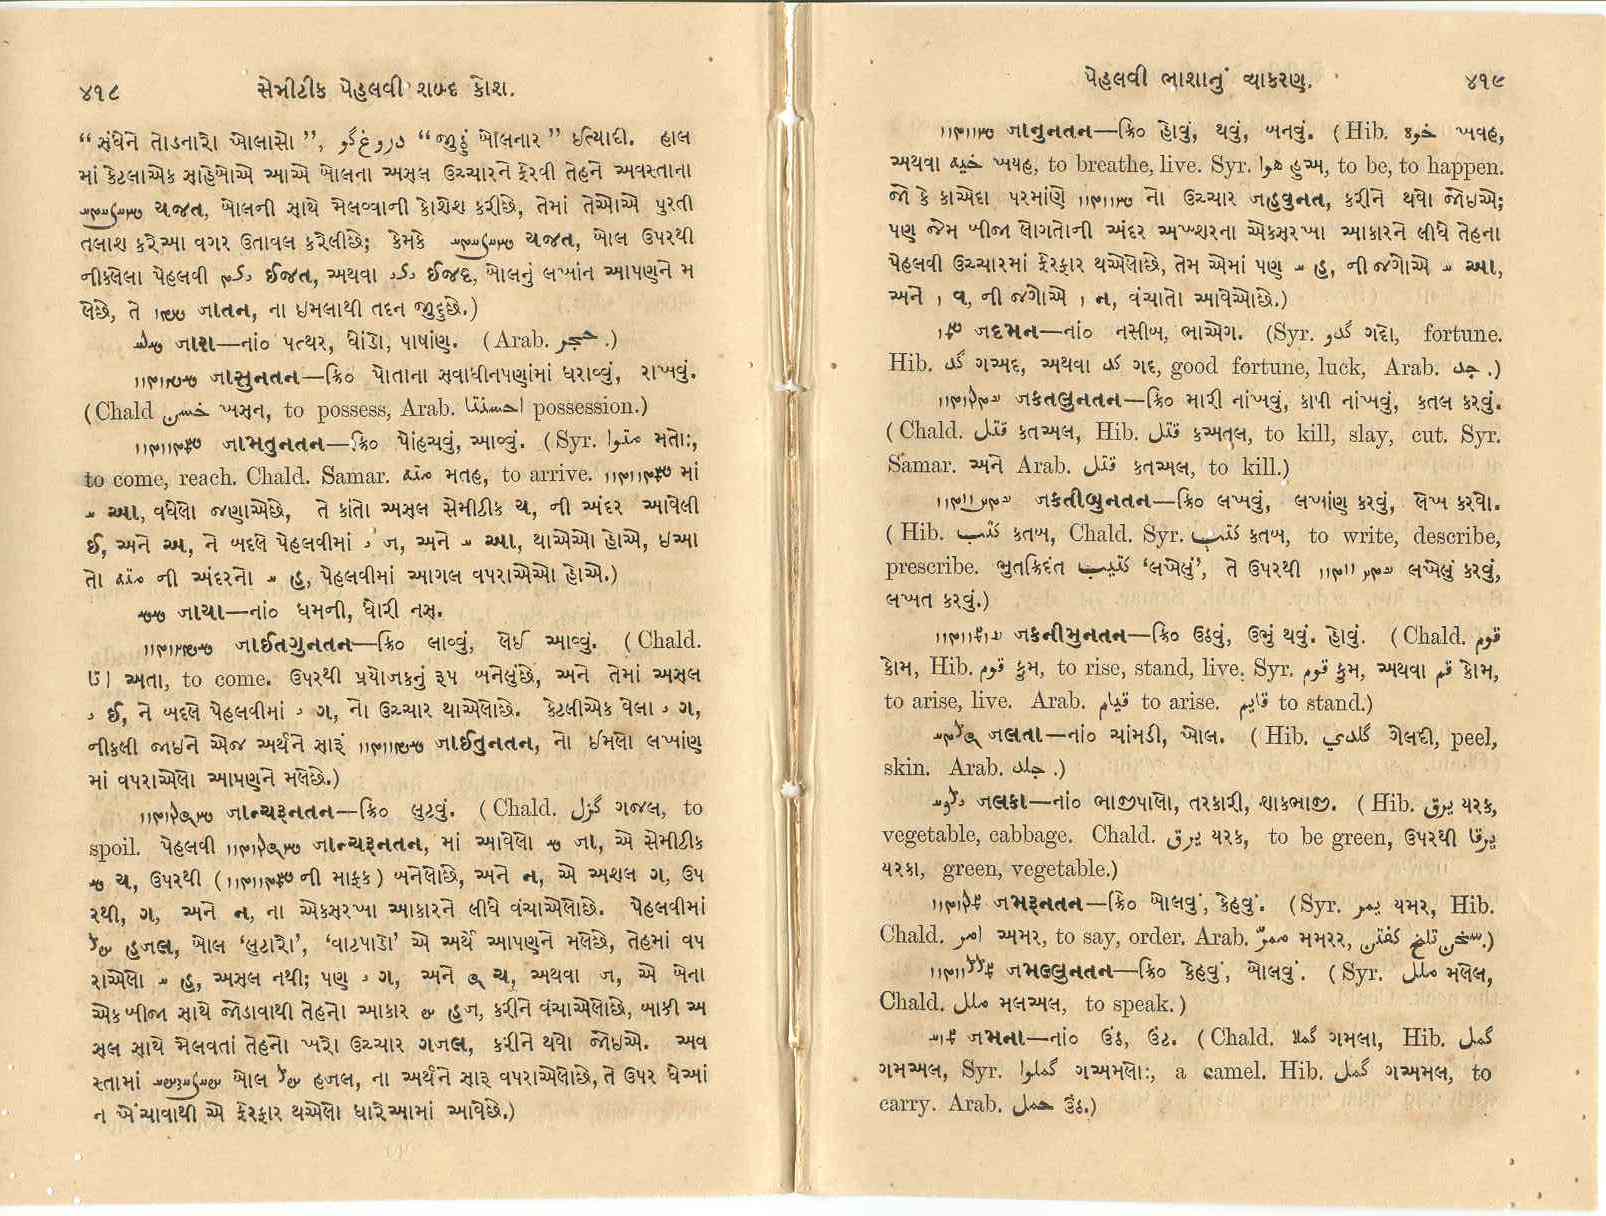 ૪૧૮ સેમીટીક પેહલવી શબ્દ કોશ.
“સંધેને તોડનારો બોલાસો”, دروغ گو “જુઠું બોલનાર” ઇત્યાદી. હાલ
માં કેટલાએક સાહેબોએ આએ બોલના અસલ ઉચ્ચારને ફેરવી તેહને અવસ્તાના
યજત, બોલની સાથે મેલવ્વાની કોશેશ કરીછે, તેમાં તેઓએ પુરતી
તલાશ કરેઆ વગર ઉતાવલ કરેલીછે; કેમકે યજત, બોલ ઉપરથી
નીકલેલા પેહલવી ઈજત, અથવા ઈજદ, બોલનું લખાંન આપણને મ
લેછે, તે જાતન, ના ઇમલાથી તદન જુદુછે.)
જારા—નાં૦ પત્થર, ધોંડો, પાષાંણ. (Arab. حجر.)
જાસુનતન—ક્રિ૦ પોતાના સવાધીનપણાંમાં ધરાવ્વું, રાખવું.
(Chald خسن ખસન, to possess, Arab. احسنتا possession.)
જામતુનતન—ક્રિ૦ પોંહચવું, આવ્વું. (Syr. متوا મતો:,
to come, reach. Chald. Samar. مته મતહ, to arrive. માં
આ, વધેલો જણાએછે, તે કાંતો અસલ સેમીટીક ય, ની અંદર આવેલી
ઈ, અને અ, ને બદલે પેહલવીમાં જ, અને આ, થાએઓ હોએ, ઇઆ
તો مته ની અંદરનો હ, પેહલવીમાં આગલ વપરાએઓ હોએ.)
જાયા—નાં૦ ધમની, ધોરી નસ.
જાઈતગુનતન—ક્રિ૦ લાવ્વું, લેઈ આવ્વું. (Chald.
اتا અતા, to come. ઉપરથી પ્રયોજકનું રૂપ બનેલુંછે, અને તેમાં અસલ
ઈ, ને બદલે પેહલવીમાં ગ, નો ઉચ્ચાર થાએલોછે. કેટલીએક વેલા ગ,
નીકલી જાઇને એજ અર્થને સારૂં જાઈતુનતન, નો ઈમલો લખાંણ
માં વપરાએલો આપણને મલેછે.)
જાન્ચરૂનતન—ક્રિ૦ લુટવું. (Chald. گزل ગજલ, to
spoil. પેહલવી જાન્ચરૂનતન, માં આવેલો જા, એ સેમીટીક
ય, ઉપરથી ( ની માફક) બનેલોછે, અને ન, એ અશલ ગ, ઉપ
રથી, ગ, અને ન, ના એકસરખા આકારને લીધે વંચાએલોછે. પેહલવીમાં
હજલ, બોલ ‘લુટારો’, ‘વાટપાડો’ એ અર્થે આપણને મલેછે, તેહમાં વપ
રાએલો હ, અસલ નથી; પણ ગ, અને ચ, અથવા જ, એ બેના
એક બીજા સાથે જોડાવાથી તેહનો આકાર હજ, કરીને વંચાએલોછે, બાકી અ
સલ સાથે મેલવતાં તેહનો ખરો ઉચ્ચાર ગજલ, કરીને થવો જોઇએ. અવ
સ્તામાં બોલ હજલ, ના અર્થને સારૂ વપરાએલોછે, તે ઉપર ધેઆં
ન ખેંચાવાથી એ ફેરફાર થએલો ધારેઆમાં આવેછે.)
પેહલવી ભાશાનું વ્યાકરણ. ૪૧૯
જાનુનતન—ક્રિ૦ હોવું, થવું, બનવું. (Hib. خوه ખવહ,
અથવા خيه ખયહ, to breathe, live. Syr. هوا હુઅ, to be, to happen.
જો કે કાએદા પરમાંણે નો ઉચ્ચાર જહવુનત, કરીને થવો જોઇએ;
પણ જેમ બીજા લોગતોની અંદર અખશરના એકસરખા આકારને લીધે તેહના
પેહલવી ઉચ્ચારમાં ફેરફાર થએલોછે, તેમ એમાં પણ હ, ની જગોએ આ,
અને વ, ની જગોએ ન, વંચાતો આવેઓછે.)
જદમન—નાં૦ નસીબ, ભાએગ. (Syr. گدو ગદો, fortune.
Hib. گد ગઅદ, અથવા گد ગદ, good fortune, luck, Arab. جد.)
જકતલુનતન—ક્રિ૦ મારી નાંખવું, કાપી નાંખવું, કતલ કરવું.
(Chald. قتل કતઅલ, Hib. قتل કઅતલ, to kill, slay, cut. Syr.
Samar. અને Arab. قتل કતઅલ, to kill.)
જકતીબુનતન—ક્રિ૦ લખવું, લખાંણ કરવું, લેખ કરવો.
(Hib. كتب કતબ, Chald. Syr. كتب કતબ, to write, describe,
prescribe. ભુતક્રિદંત كتيب ‘લખેલું’, તે ઉપરથી લખેલું કરવું,
લખત કરવું.)
જકનીમુનતન—ક્રિ૦ ઉઠવું, ઉભું થવું. હોવું. (Chald. قوم
કોમ, Hib. قوم કુમ, to rise, stand, live. Syr. قوم કુમ, અથવા قم કોમ,
to arise, live. Arab. قيام to arise. قايم to stand.)
જલતા—નાં૦ ચાંમડી, ખોલ. (Hib. گلدي ગેલદી, peel,
skin. Arab. جلد.)
જલકા—નાં૦ ભાજીપાલો, તરકારી, શાકભાજી. (Hib. يرق યરક,
vegetable, cabbage. Chald. يرق યરક, to be green, ઉપરથી يرقا
યરકા, green, vegetable.)
જમરૂનતન—ક્રિ૦ બોલવું, કેહવું. (Syr. يمر યમર, Hib.
Chald. امر અમર, to say, order. Arab. ممرّ મમરર, سخن تلخ گفتن.)
જમલ્લુનતન—ક્રિ૦ કેહવું, બોલવું. (Syr. ملل મલેલ,
Chald. ملل મલઅલ, to speak.)
જમના—નાં૦ ઉંઠ, ઉંટ. (Chald. گملا ગમલા, Hib. گمل
ગમઅલ, Syr. گملوا ગઅમલો:, a camel. Hib. گمل ગઅમલ, to
carry. Arab. حمل ઉંઠ.)